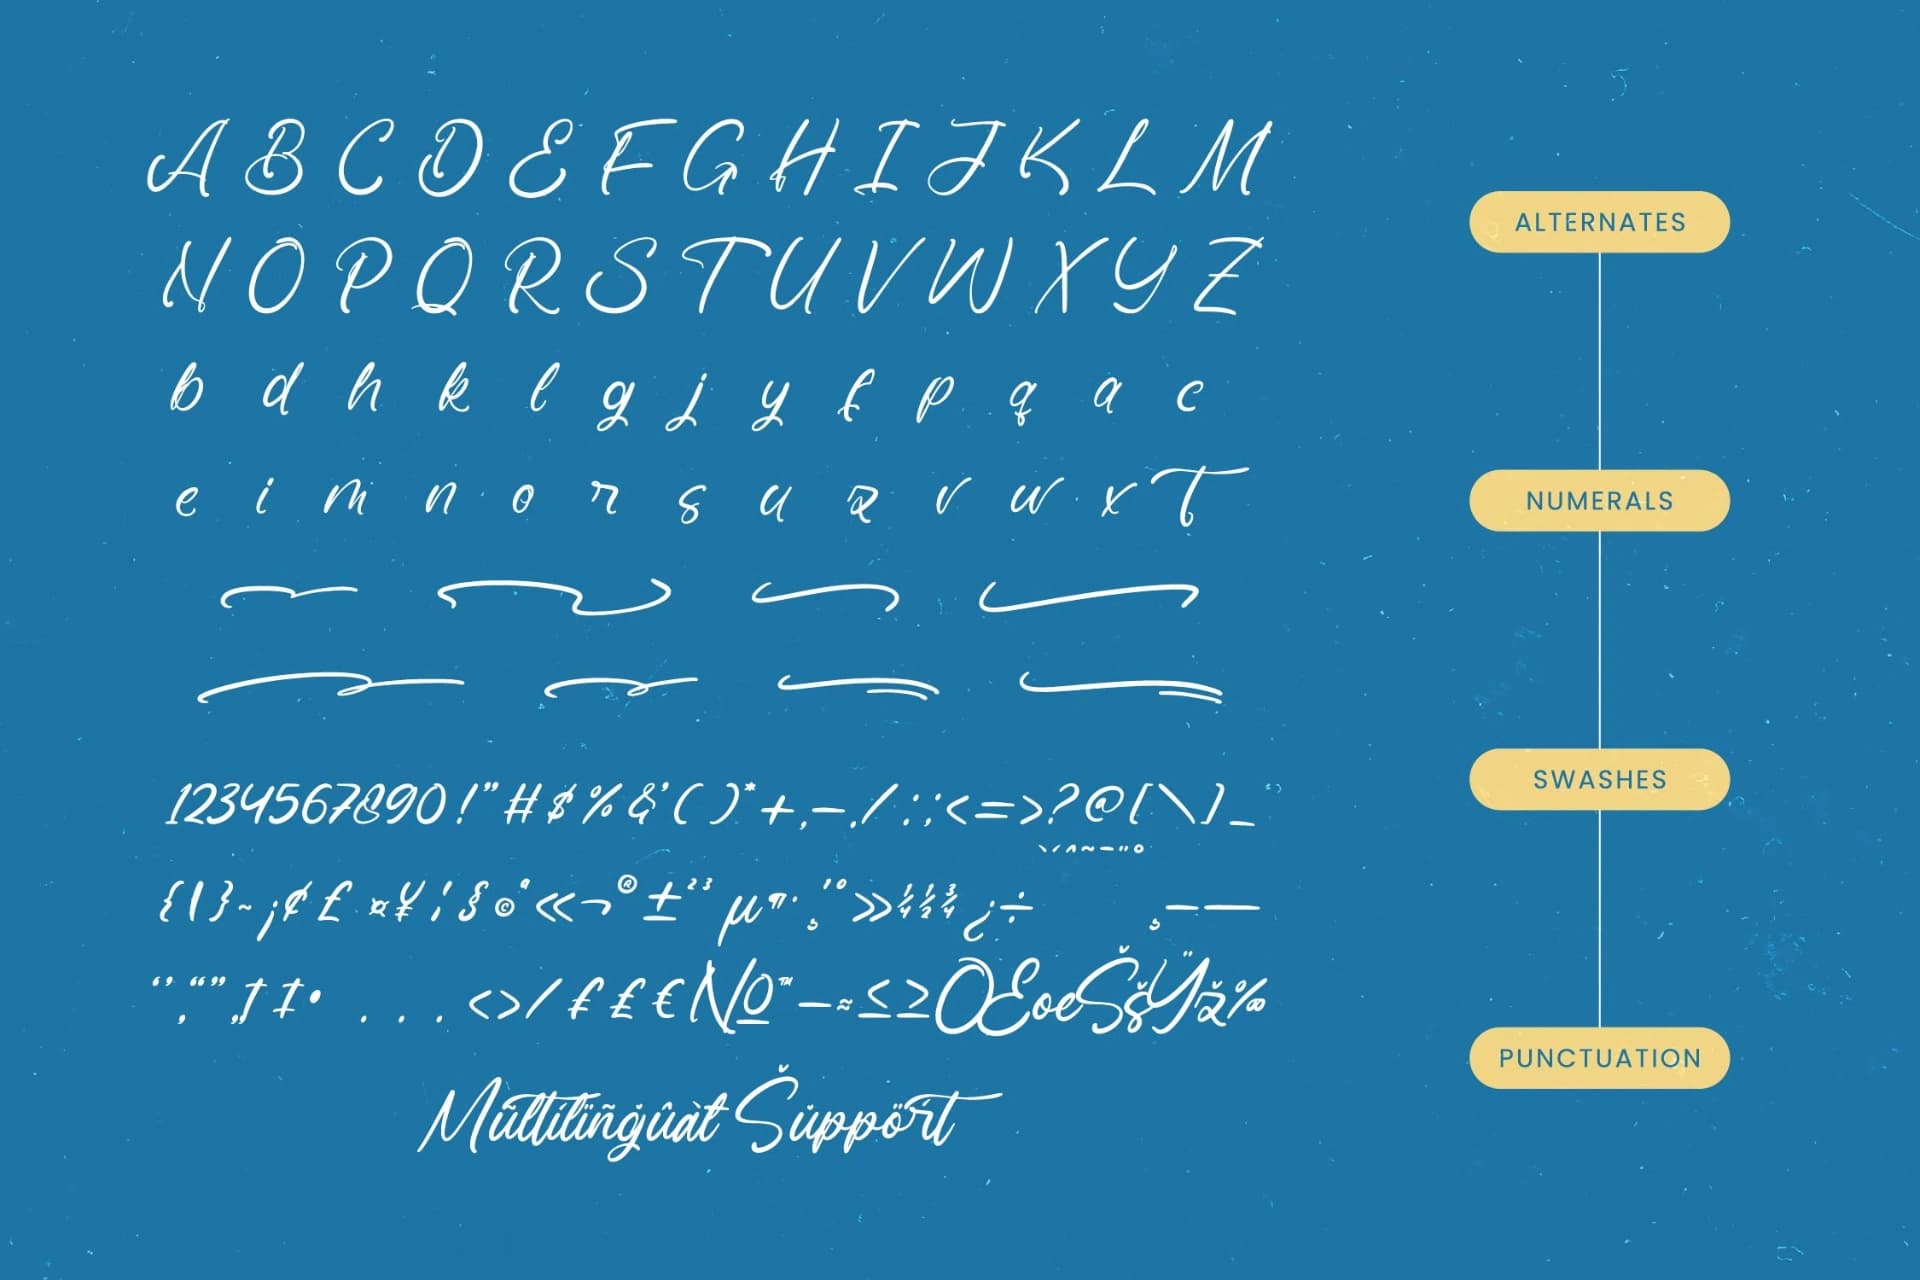 A B C D E F G H I J K L M
N O P Q R S T U V W X Y Z
b d h k l g j y f p q a c
e i m n o r s u z v w x T
1234567890!”#$%&’()*+,-./:;<=>?@[\]_
{|}~¡¢£¤¥¦§©ª«¬®±²³µ¶·¸¹º»¼½¾¿÷
‘’‚“”„†‡•...‹›⁄₣₤€№™−≈≤≥ŒœŠšŸž‰
Mũltílïñġûàl Šŭppört
ALTERNATES
NUMERALS
SWASHES
PUNCTUATION